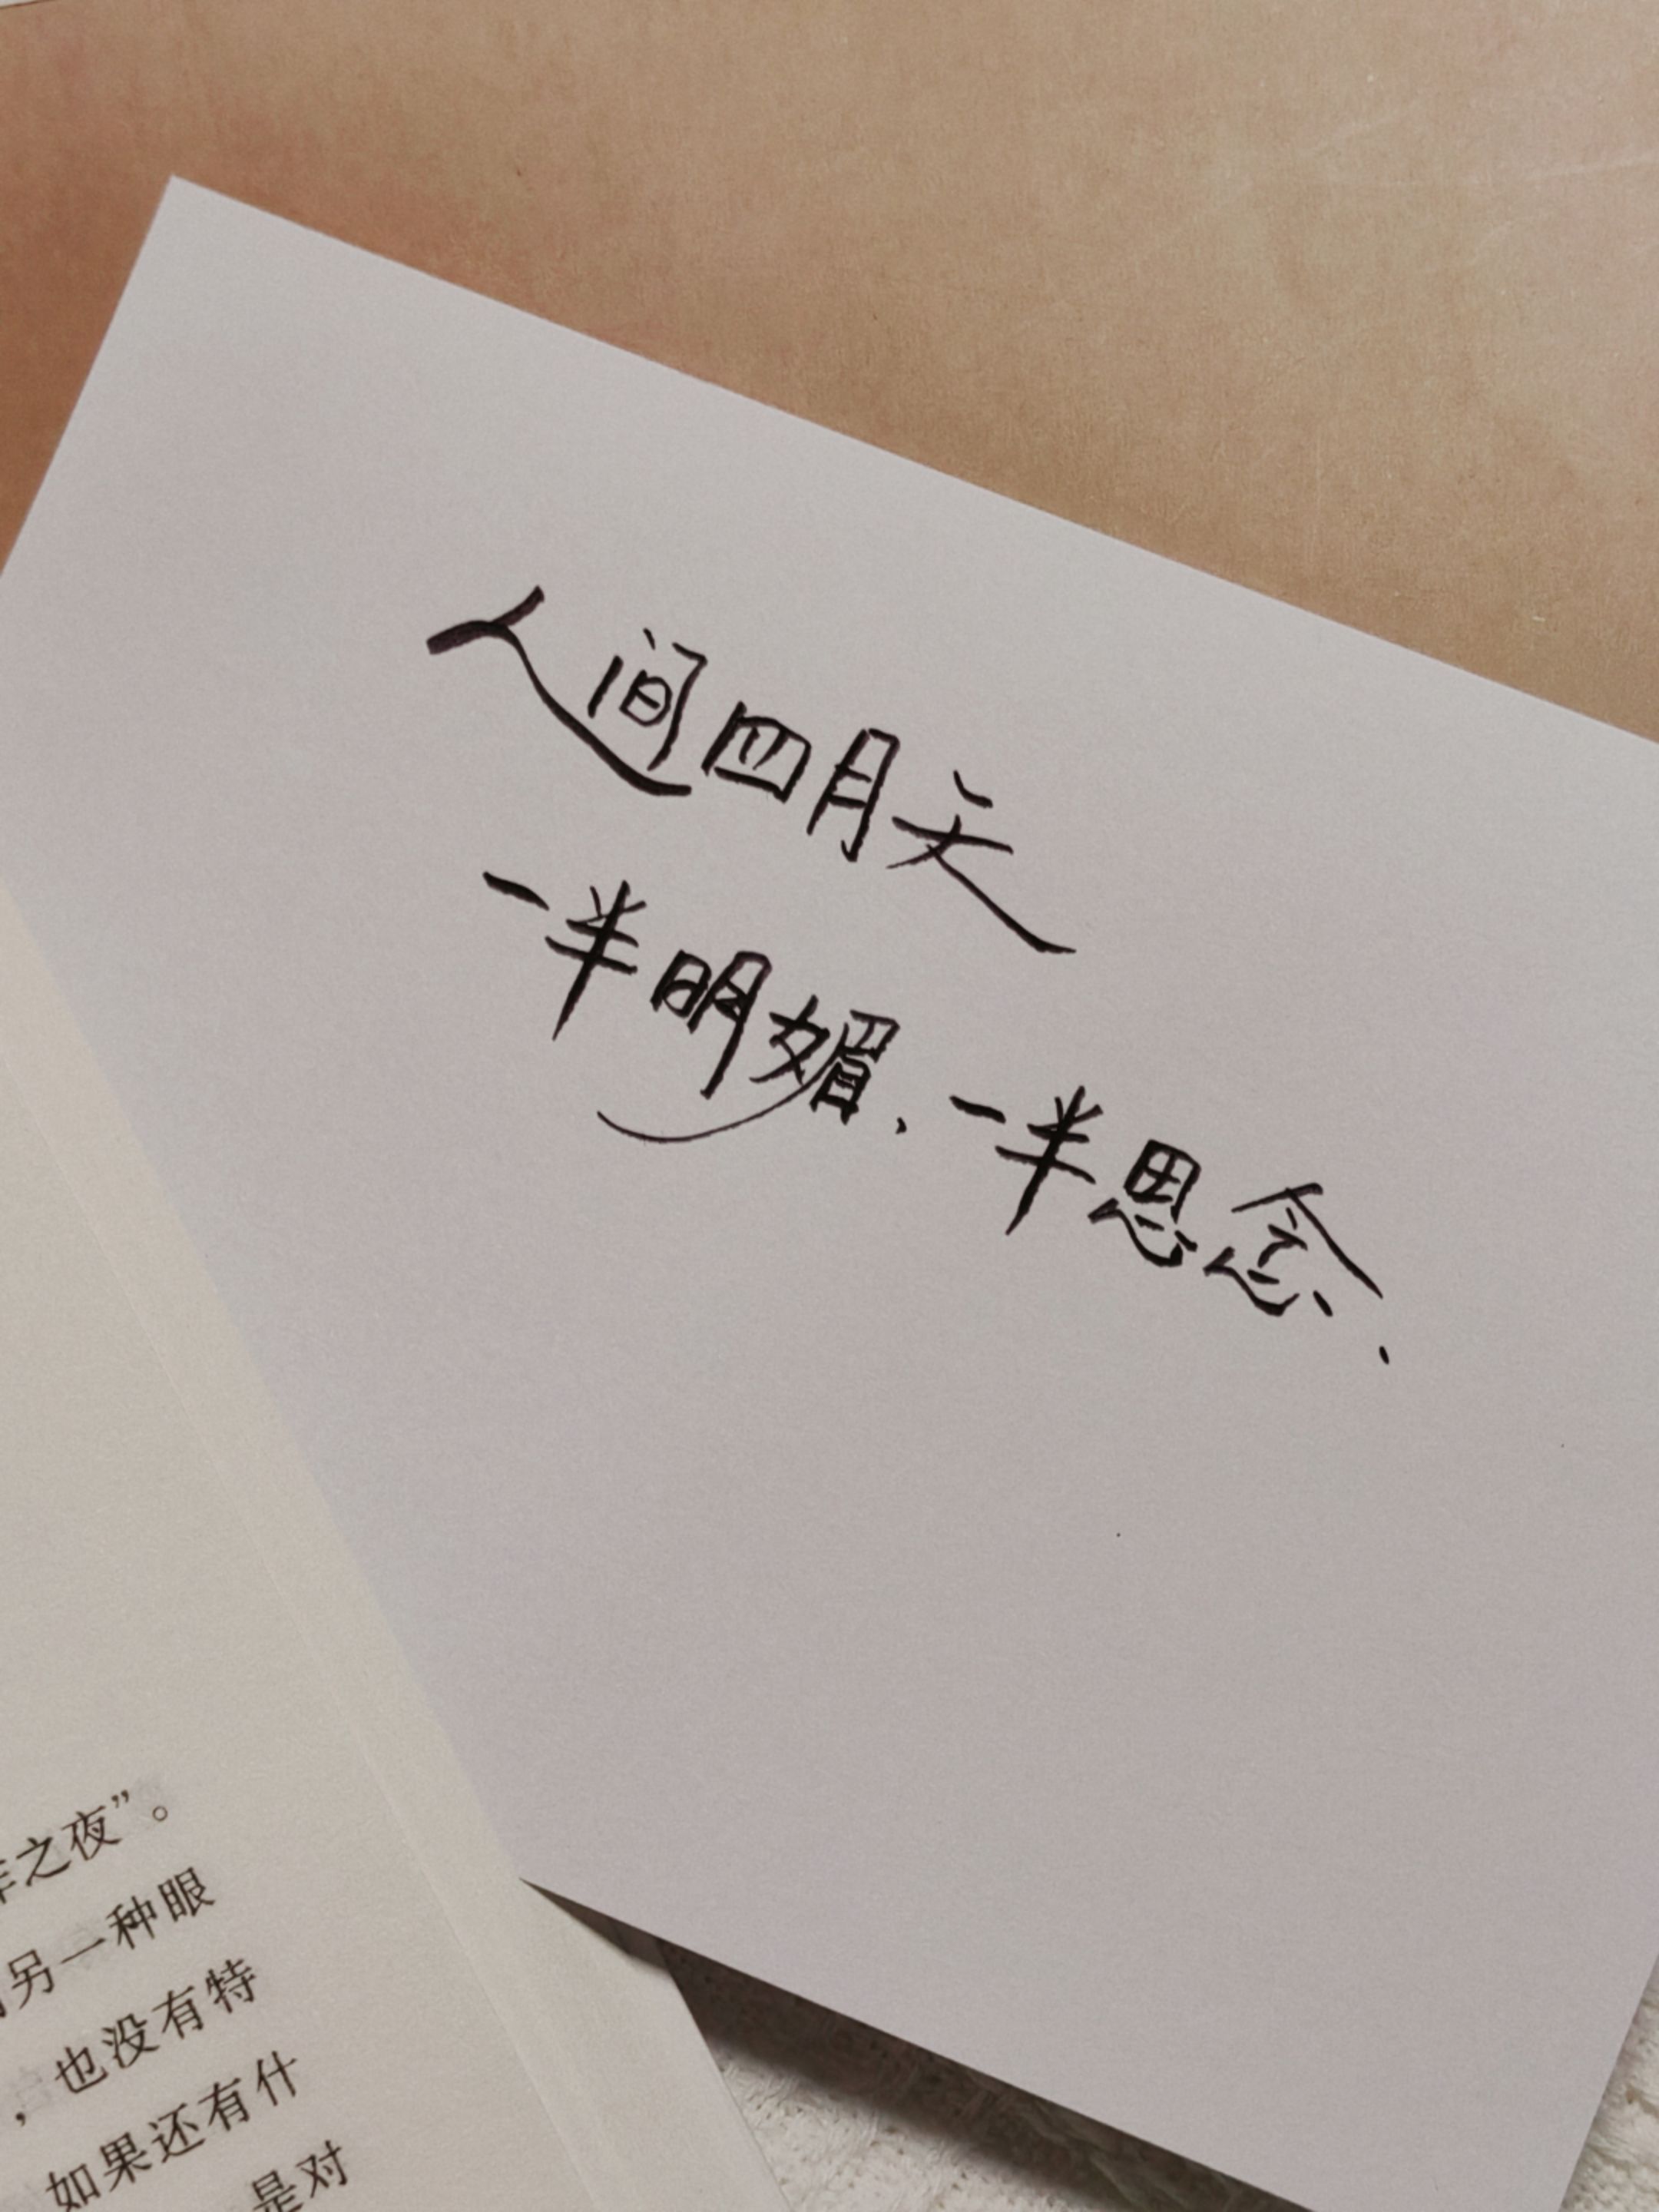 人间四月天
一半明媚、一半思念、
之夜”。
另一种眼
，也没有特
如果还有什
是对